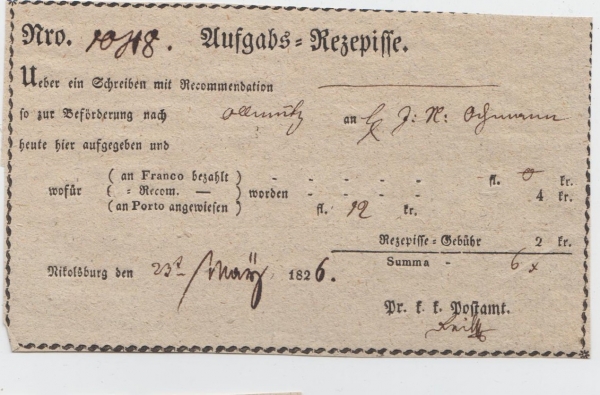 Nro. 1048. Aufgabs=Rezepisse.
Ueber ein Schreiben mit Recommendation
so zur Beförderung nach Ollmütz an J: N: Ochmann
heute hier aufgegeben und
wofür
( an Franco bezahlt ) - - - - - fl. 0 kr.
{ = Recom. — } worden - - - - - 4 kr.
(an Porto angewiesen ) fl. 12 kr.
Rezepisse=Gebühr 2 kr.
Nikolsburg den 23t März 1826. Summa - 6 x
Pr. k. k. Postamt.